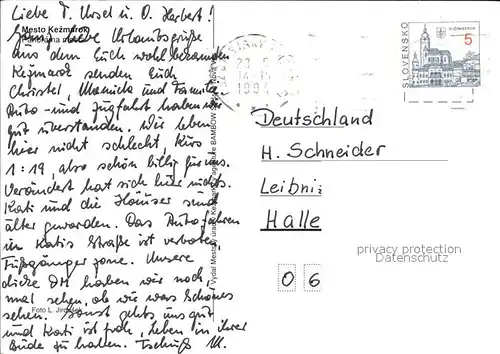 Liebe T. Ursel u. O. Herbert!
Mesto Kežmarok
Ganz liebe Urlaubsgrüße
aus dem Euch wohl bekannten
Kežmarok senden Euch
Christel, Manuela und Familie
Auto- und Zugfahrt haben wir
gut überstanden. Wir leben
hier nicht schlecht, Kurs
1:19, also schön billig für uns.
Verändert hat sich hier nichts.
Kati und die Häuser sind
älter geworden. Das Autofahren
in Katis Straße ist verboten,
Fußgängerzone. Unsere
dicke DM haben wir noch,
mal sehen, ob wir was Schönes
sehen. Sonst gehts uns gut
und Kati ist froh, Leben in ihrer
Bude zu haben. Tschüß M.
Foto L. Jiroušek
SLOVENSKO
5
1994
Deutschland
H. Schneider
Leibni:
Halle
06
privacy protection
Datenschutz